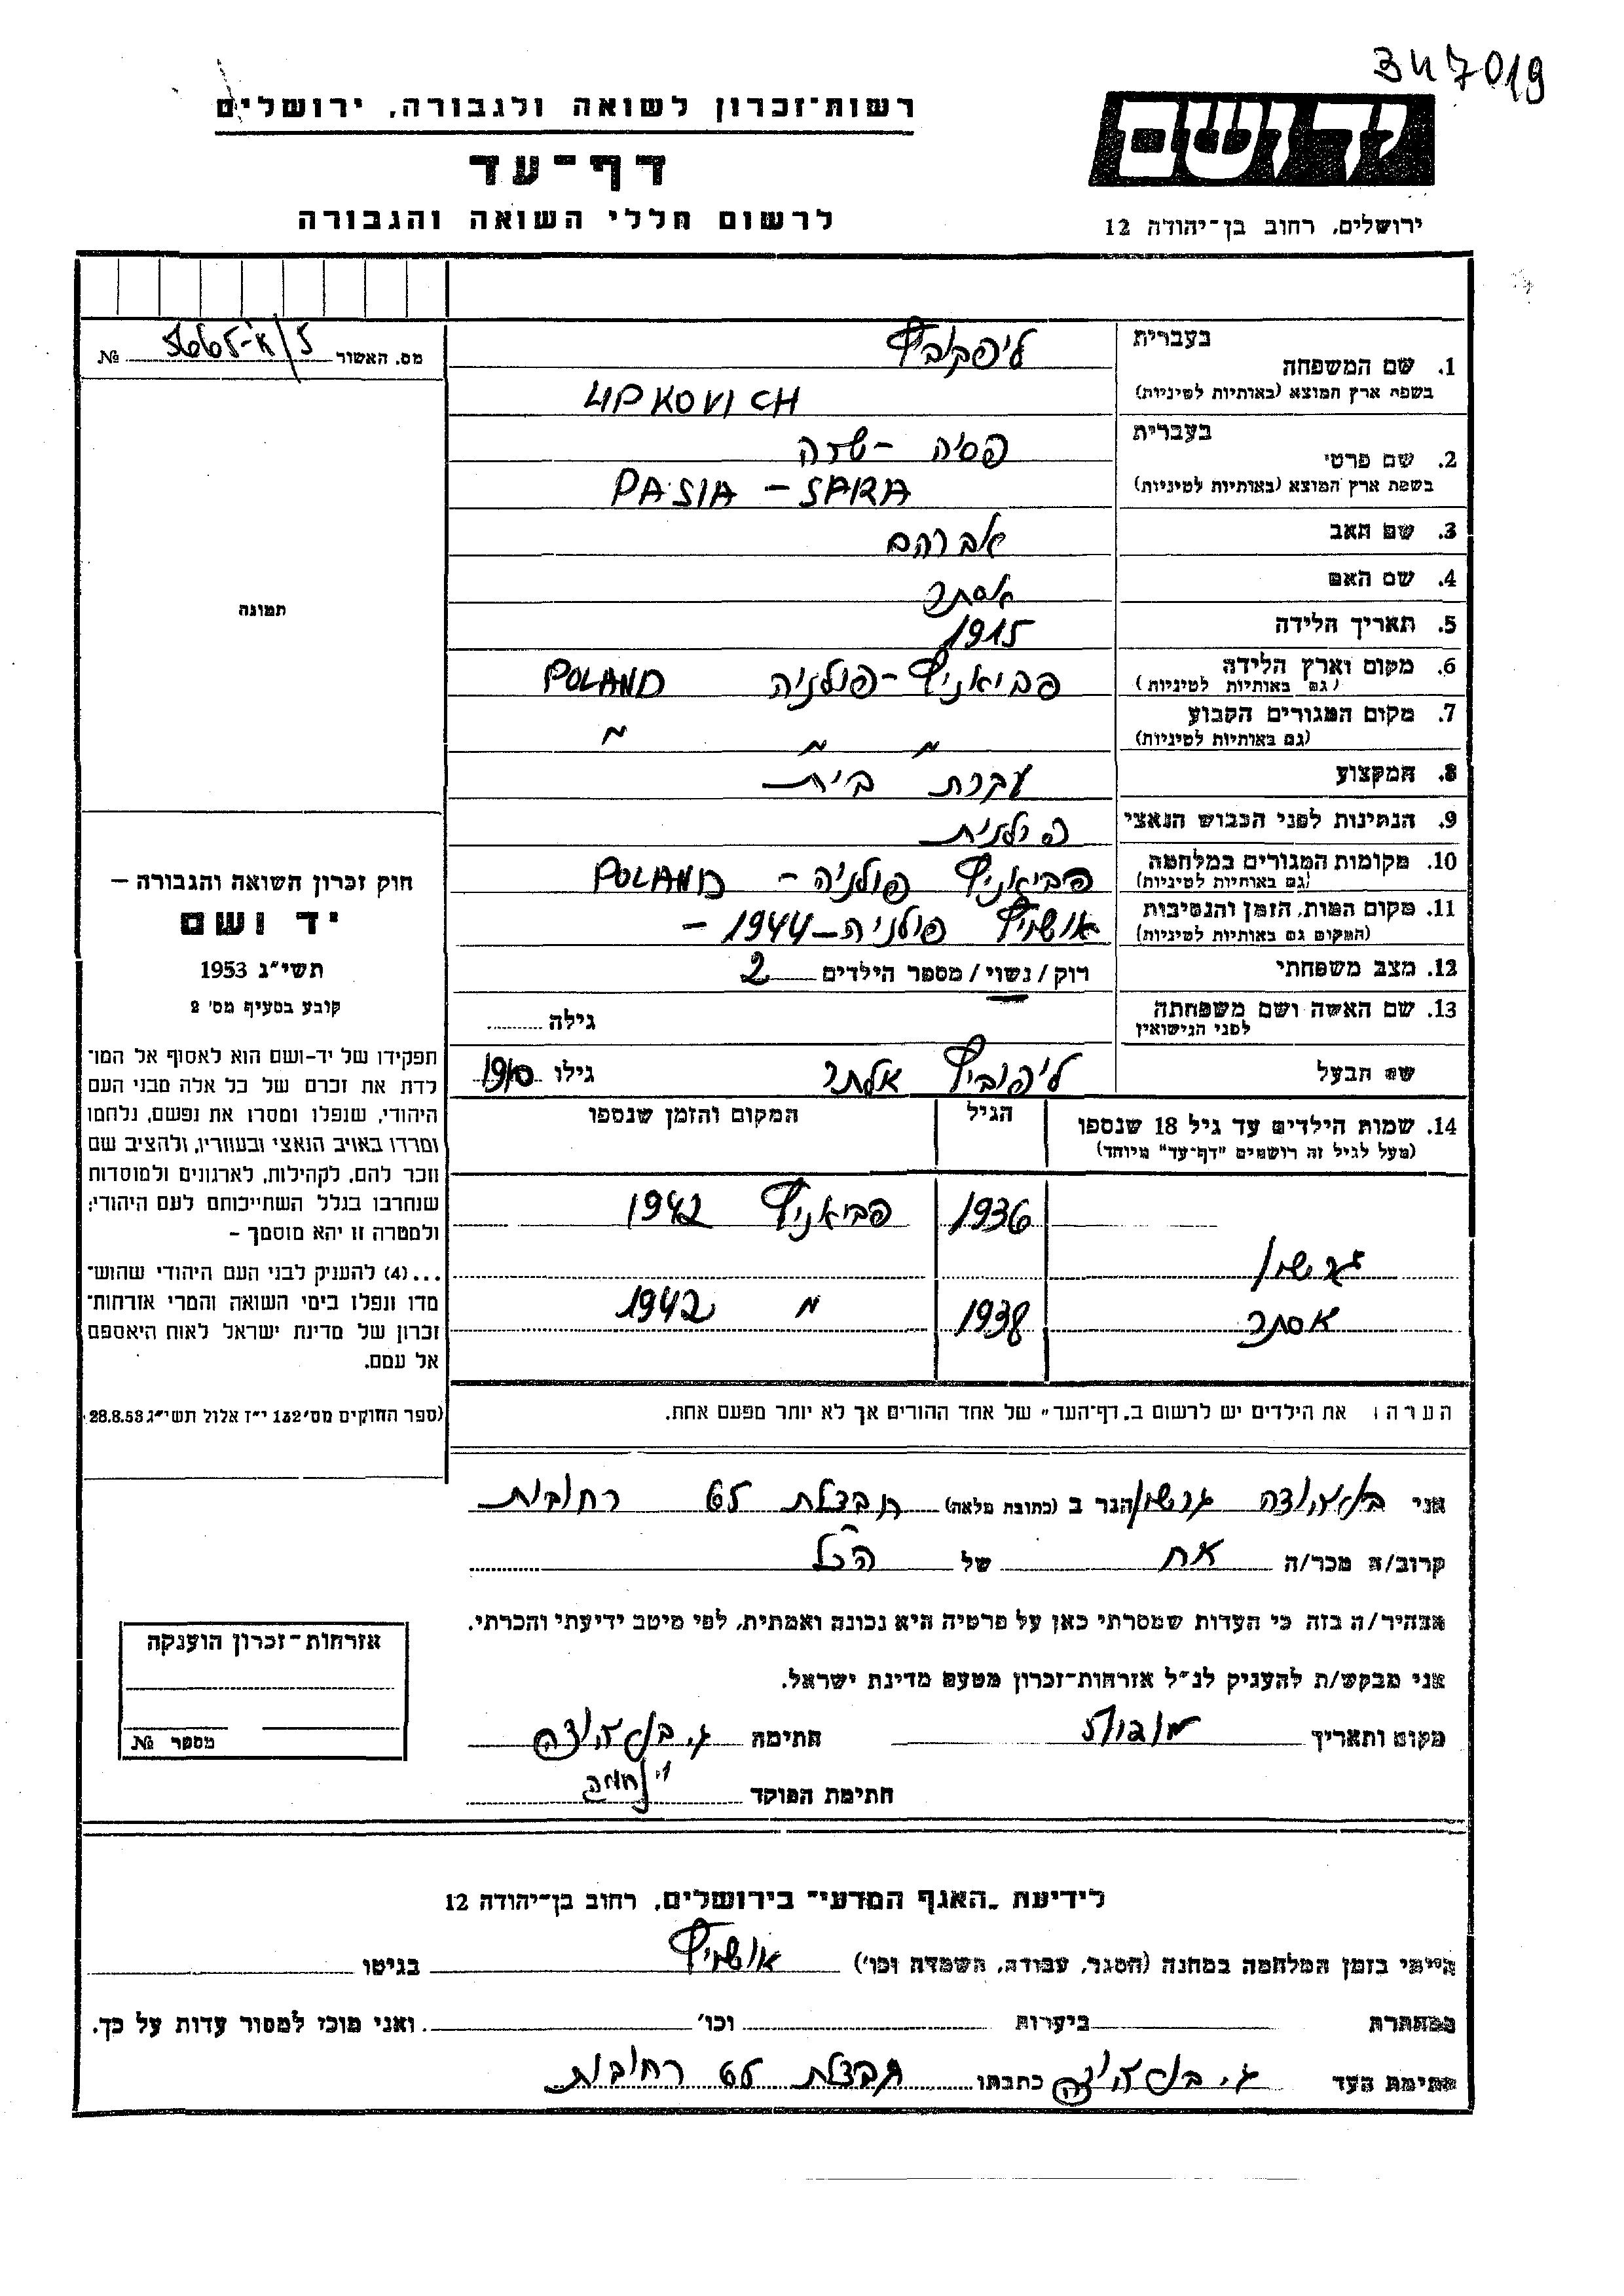 347019
רשות־זכרון לשואה ולגבורה, ירושלים
דף־עד
לרשום חללי השואה והגבורה
יד ושם
ירושלים, רחוב בן־יהודה 12
מס. האשור № 5665-א/5
תמונה
1. שם המשפחה
בעברית
ליפקוביץ
בשפת ארץ המוצא (באותיות לטיניות)
LIPKOVICH
2. שם פרטי
בעברית
פסיה - שרה
בשפת ארץ המוצא (באותיות לטיניות)
PASIA - SARA
3. שם האב אברהם
4. שם האם אסתר
5. תאריך הלידה 1915
6. מקום וארץ הלידה פביאניץ - פולניה POLAND
(גם באותיות לטיניות)
7. מקום המגורים הקבוע " " "
(גם באותיות לטיניות)
8. המקצוע עקרת בית
9. הנתינות לפני הכבוש הנאצי פולנית
10. מקומות המגורים במלחמה פביאניץ פולניה - POLAND
(גם באותיות לטיניות)
11. מקום המות, הזמן והנסיבות אושויץ פולניה - 1944 -
(המקום גם באותיות לטיניות)
12. מצב משפחתי רוק / נשוי / מספר הילדים 2
13. שם האשה ושם משפחתה גילה
לפני הנישואין
שם הבעל אלתר גילו 1910
14. שמות הילדים עד גיל 18 שנספו הגיל המקום והזמן שנספו
(מעל לגיל זה רושמים "דף־עד" מיוחד)
גרשון 1936 פביאניץ 1942
אסתר 1938 " 1942
הערה: את הילדים יש לרשום ב„דף־העד" של אחד ההורים אך לא יותר מפעם אחת.
חוק זכרון השואה והגבורה —
יד ושם
תשי״ג 1953
קובע בסעיף מס' 2
תפקידו של יד-ושם הוא לאסוף אל המו־
לדת את זכרם של כל אלה מבני העם
היהודי, שנפלו ומסרו את נפשם, נלחמו
ומרדו באויב הנאצי ובעוזריו, ולהציב שם
וזכר להם, לקהילות, לארגונים ולמוסדות
שנחרבו בגלל השתייכותם לעם היהודי;
ולמטרה זו יהא מוסמך -
...(4) להעניק לבני העם היהודי שהוש־
מדו ונפלו בימי השואה והמרי אזרחות־
זכרון של מדינת ישראל לאות היאספם
אל עמם.
(ספר החוקים מס' 132 י״ז אלול תשי״ג 28.8.53
אני בן יהודה גרשון הגר ב (כתובת מלאה) חבצלת רחובות
קרוב/ה מכר/ה אח של הנ"ל
מצהיר/ה בזה כי העדות שמסרתי כאן על פרטיה היא נכונה ואמתית, לפי מיטב ידיעתי והכרתי.
אני מבקש/ת להעניק לנ״ל אזרחות־זכרון מטעם מדינת ישראל.
מקום ותאריך חתימה ג. בן יהודה
חתימת הפוקד
אזרחות־זכרון הוענקה
מספר №
לידיעת „האגף המדעי" בירושלים, רחוב בן־יהודה 12
הייתי בזמן המלחמה במחנה (הסגר, עבודה, השמדה וכו') אושויץ בגיטו
במחתרת ביערות וכו' ואני מוכן למסור עדות על כך.
חתימת העד ג. בן יהודה כתבתו חבצלת רחובות